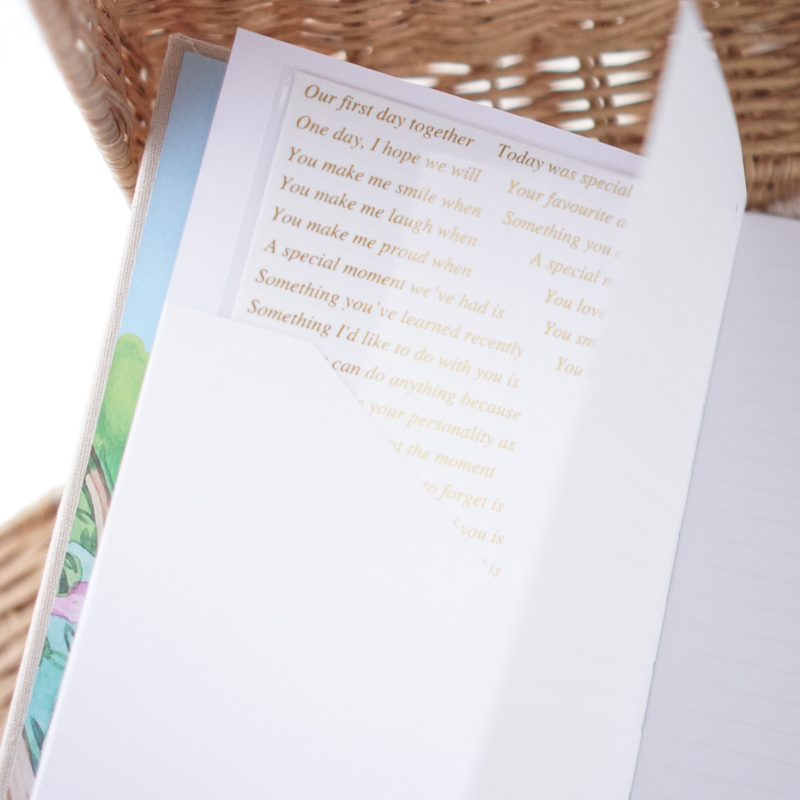 Our first day together
One day, I hope we will
You make me smile when
You make me laugh when
You make me proud when
A special moment we've had is
Something you've learned recently
Something I'd like to do with you is
can do anything because
your personality as
at the moment
to forget is
you is
is
Today was special
Your favourite
Something you
A special
You love
You
You